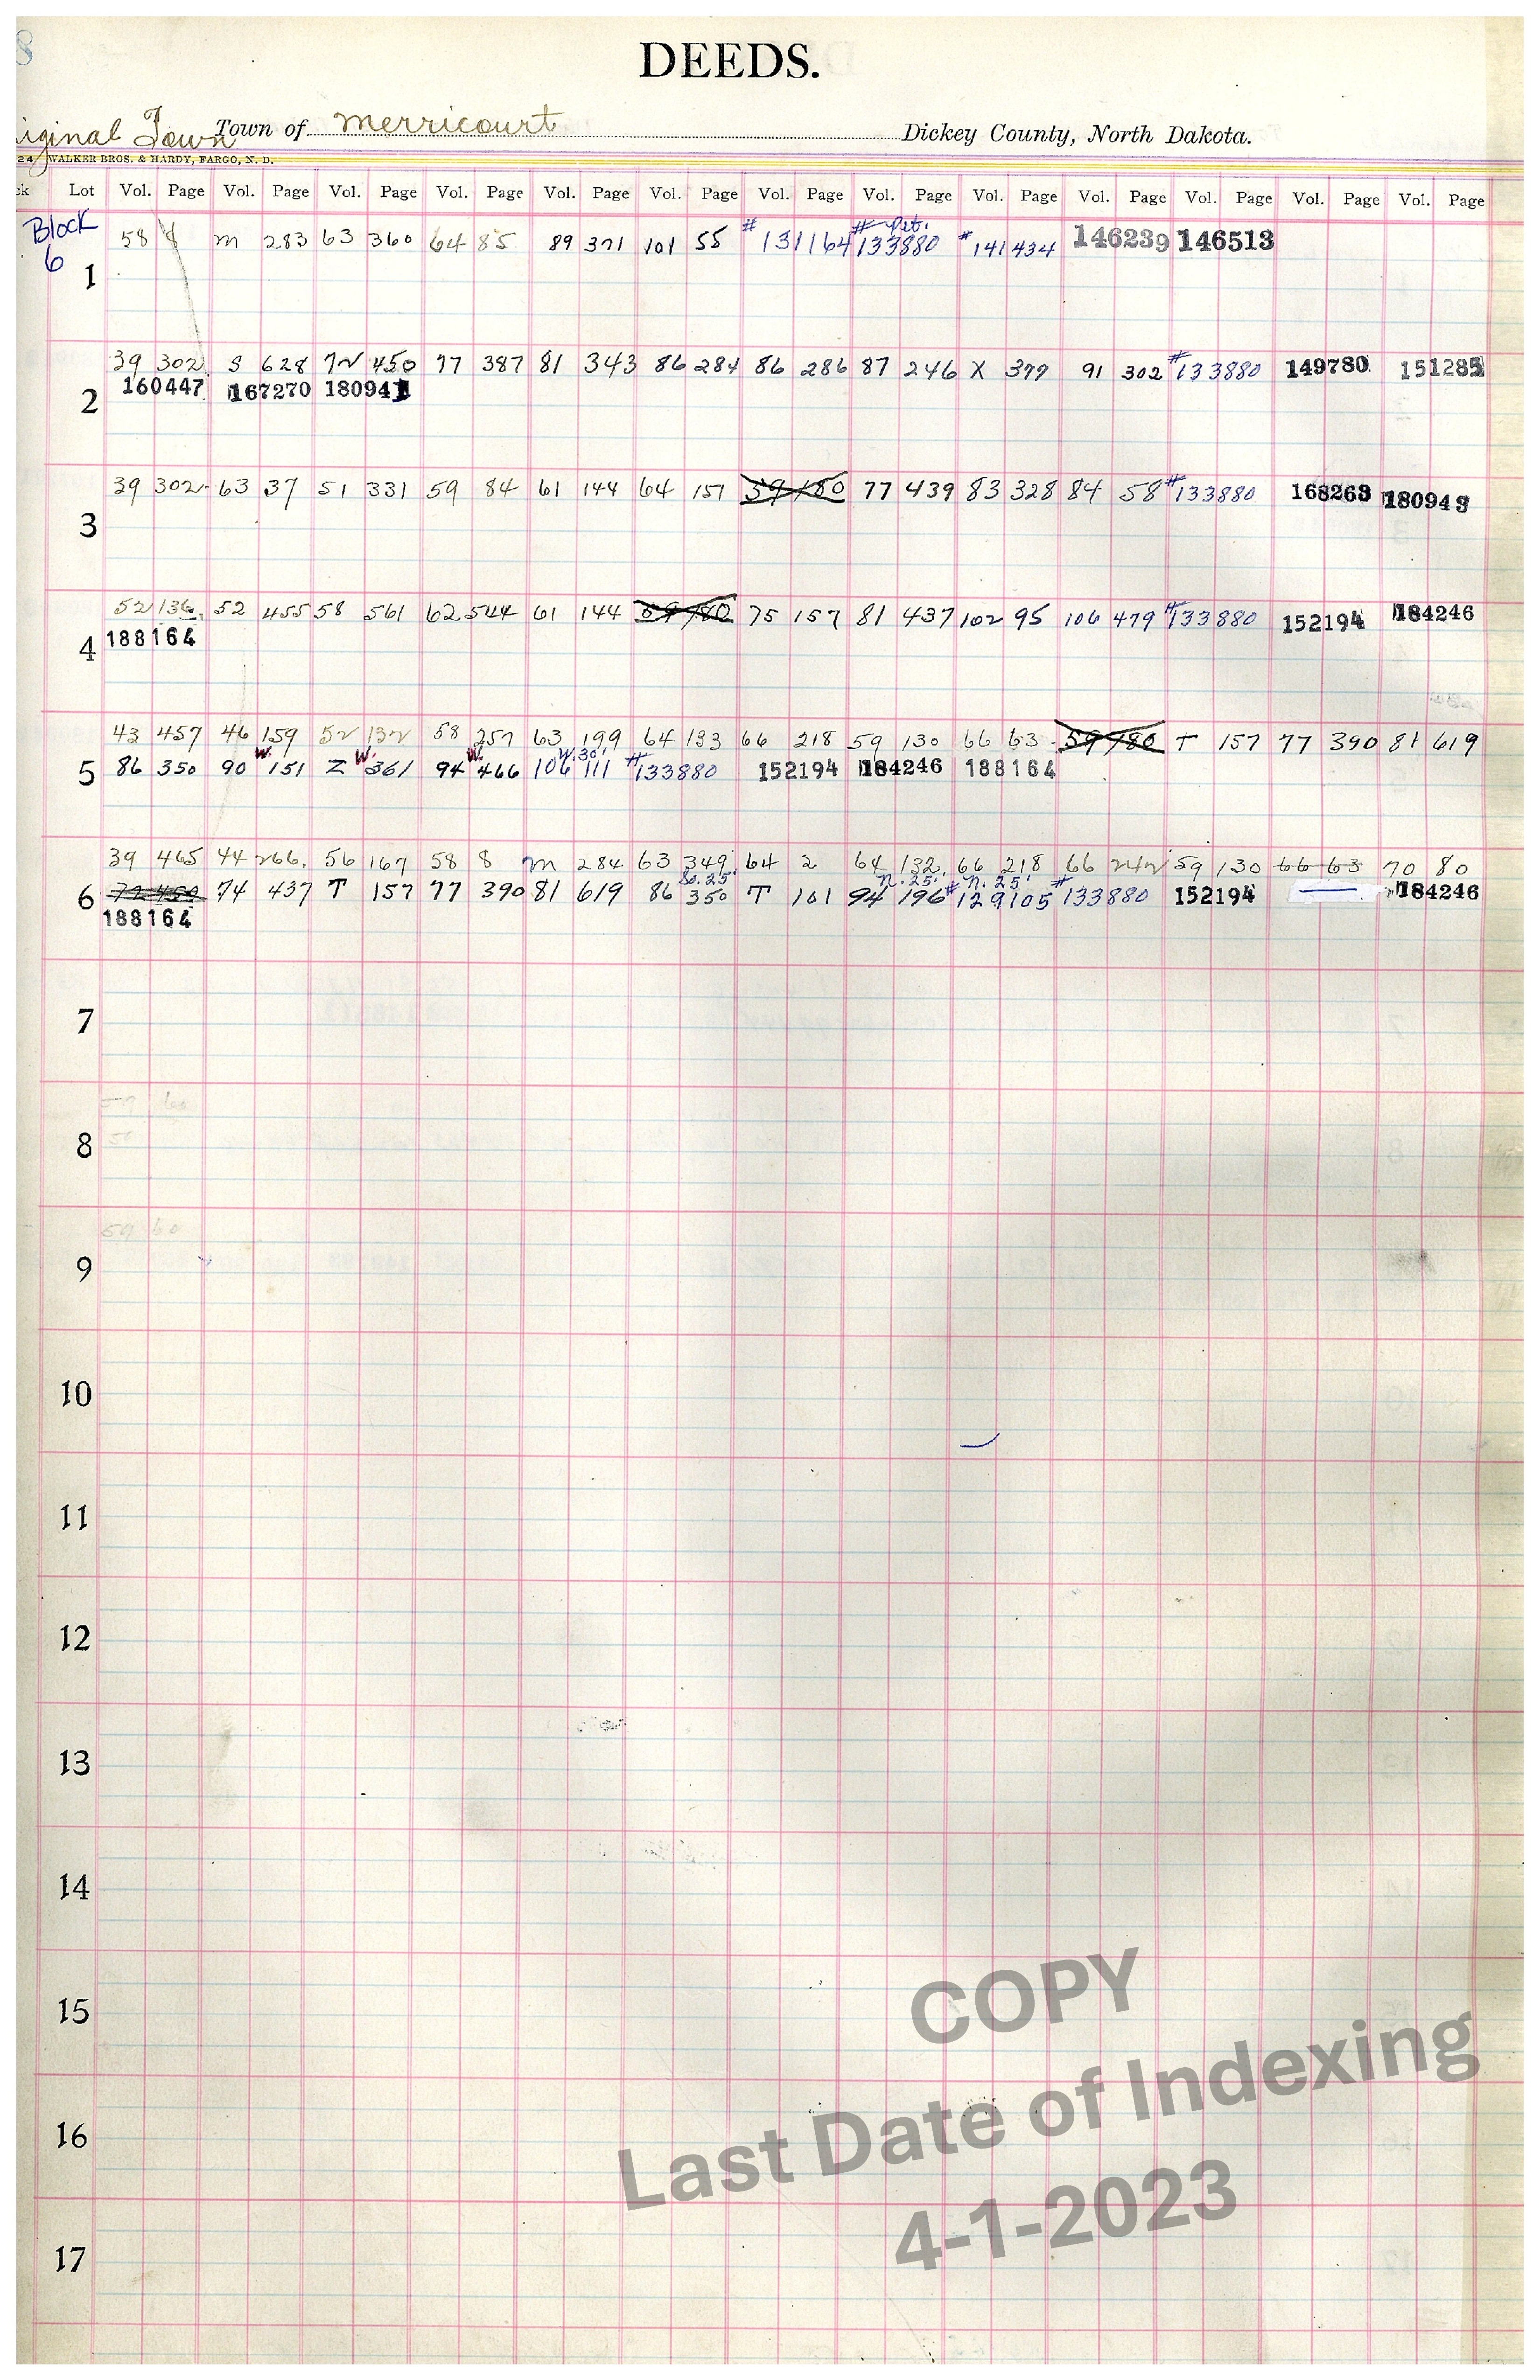 DEEDS.
iginal Town Town of Merricourt Dickey County, North Dakota.
24 WALKER BROS. & HARDY, FARGO, N. D.
ck Lot Vol. Page Vol. Page Vol. Page Vol. Page Vol. Page Vol. Page Vol. Page Vol. Page Vol. Page Vol. Page Vol. Page Vol. Page Vol. Page
Block # # Pet.
58 8 M 283 63 360 64 85 89 371 101 55 131164 133880 # 141434 146239 146513
6
1
39 302 S 628 72 450 77 387 81 343 86 284 86 286 87 246 X 399 91 302 #133880 149780 151285
160447 167270 180941
2
39 302 63 37 51 331 59 84 61 144 64 157 59 180 77 439 83 328 84 58 #133880 168263 180943
3
52 136 52 455 58 561 62 544 61 144 59 180 75 157 81 437 102 95 106 479 #133880 152194 184246
4 188164
43 457 46 159 52 132 58 257 63 199 64 133 66 218 59 130 66 63 59 180 T 157 77 390 81 619
W. W. W. W. 30'
5 86 350 90 151 Z 361 94 466 106 111 #133880 152194 184246 188164
39 465 44 266 56 167 58 8 M 284 63 349 64 2 64 132 66 218 66 242 59 130 66 63 70 80
So. 25' N. 25' N. 25'
6 72 450 74 437 T 157 77 390 81 619 86 350 T 101 94 196 #129105 #133880 152194 184246
188164
7
59 60
8
59 60
9
10
11
12
13
14
15
16
17
COPY
Last Date of Indexing
4-1-2023